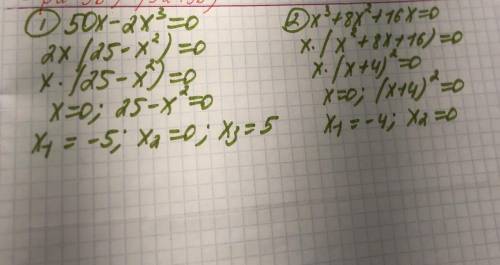 ① 50x-2x³=0
2x(25-x²)=0
x·(25-x²)=0
x=0; 25-x²=0
x₁=-5; x₂=0; x₃=5
② x³+8x²+16x=0
x·(x²+8x+16)=0
x·(x+4)²=0
x=0; (x+4)²=0
x₁=-4; x₂=0